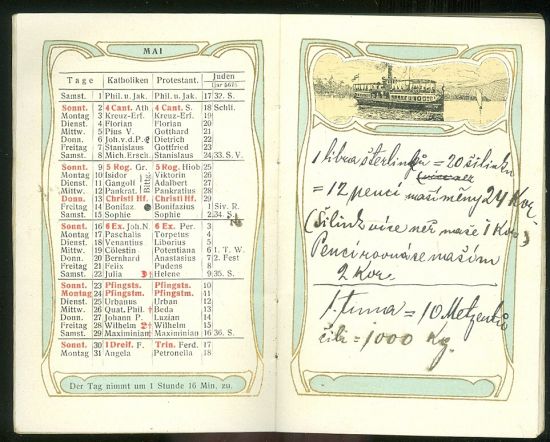 MAI
Tage Katholiken Protestant. Juden
(Ijar 5675)
Samst. 1 Phil. u. Jak. Phil. u. Jak. 17 32. S.
Sonnt. 2 4 Cant. Ath. 4 Cant. S. 18 Schli.
Montag 3 Kreuz-Erf. Kreuz-Erf. 19
Dienst. 4 Florian Florian 20
Mittw. 5 Pius V. Gotthard 21
Donn. 6 Joh. v. d. P. Dietrich 22
Freitag 7 Stanislaus Gottfried 23
Samst. 8 Mich. Ersch. Stanislaus 24 33. S. V.
Sonnt. 9 5 Rog. Gr. 5 Rog. Hiob 25
Montag 10 Isidor Viktorin 26
Dienst. 11 Gangolf Adalbert 27
Mittw. 12 Pankrat. Pankratius 28
Bittg.
Donn. 13 Christi Hf. Christi Hf. 29
Freitag 14 Bonifaz Bonifazius 1 Siv. R.
Samst. 15 Sophie Sophie 2 34. S.
Sonnt. 16 6 Ex. Joh. N. 6 Ex. Per. 3
Montag 17 Paschalis Torpetus 4
Dienst. 18 Venantius Liborius 5
Mittw. 19 Cölestin Potentiana 6 I. T. W.
Donn. 20 Bernhard Anastasius 7 2. Fest
Freitag 21 Felix Pudens 8
Samst. 22 Julia † Helene 9 35. S.
Sonnt. 23 Pfingsts. Pfingsts. 10
Montag 24 Pfingstm. Pfingstm. 11
Dienst. 25 Urbanus Urban 12
Mittw. 26 Quat. Phil. † Beda 13
Donn. 27 Johann P. Luzian 14
Freitag 28 Wilhelm † Wilhelm 15
Samst. 29 Maximinian † Maximinian 16 36. S.
Sonnt. 30 1 Dreif. F. Trin. Ferd. 17
Montag 31 Angela Petronella 18
Der Tag nimmt um 1 Stunde 16 Min. zu.
1 libra šterlinků = 20 šilinků
= 12 pencí naší měny 24 Kor
(Šilink více než naše 1 Kor)
Pencí rovnáce našim
2 Kor
1. tunna = 10 Metzentů
čili = 1000 Kg.